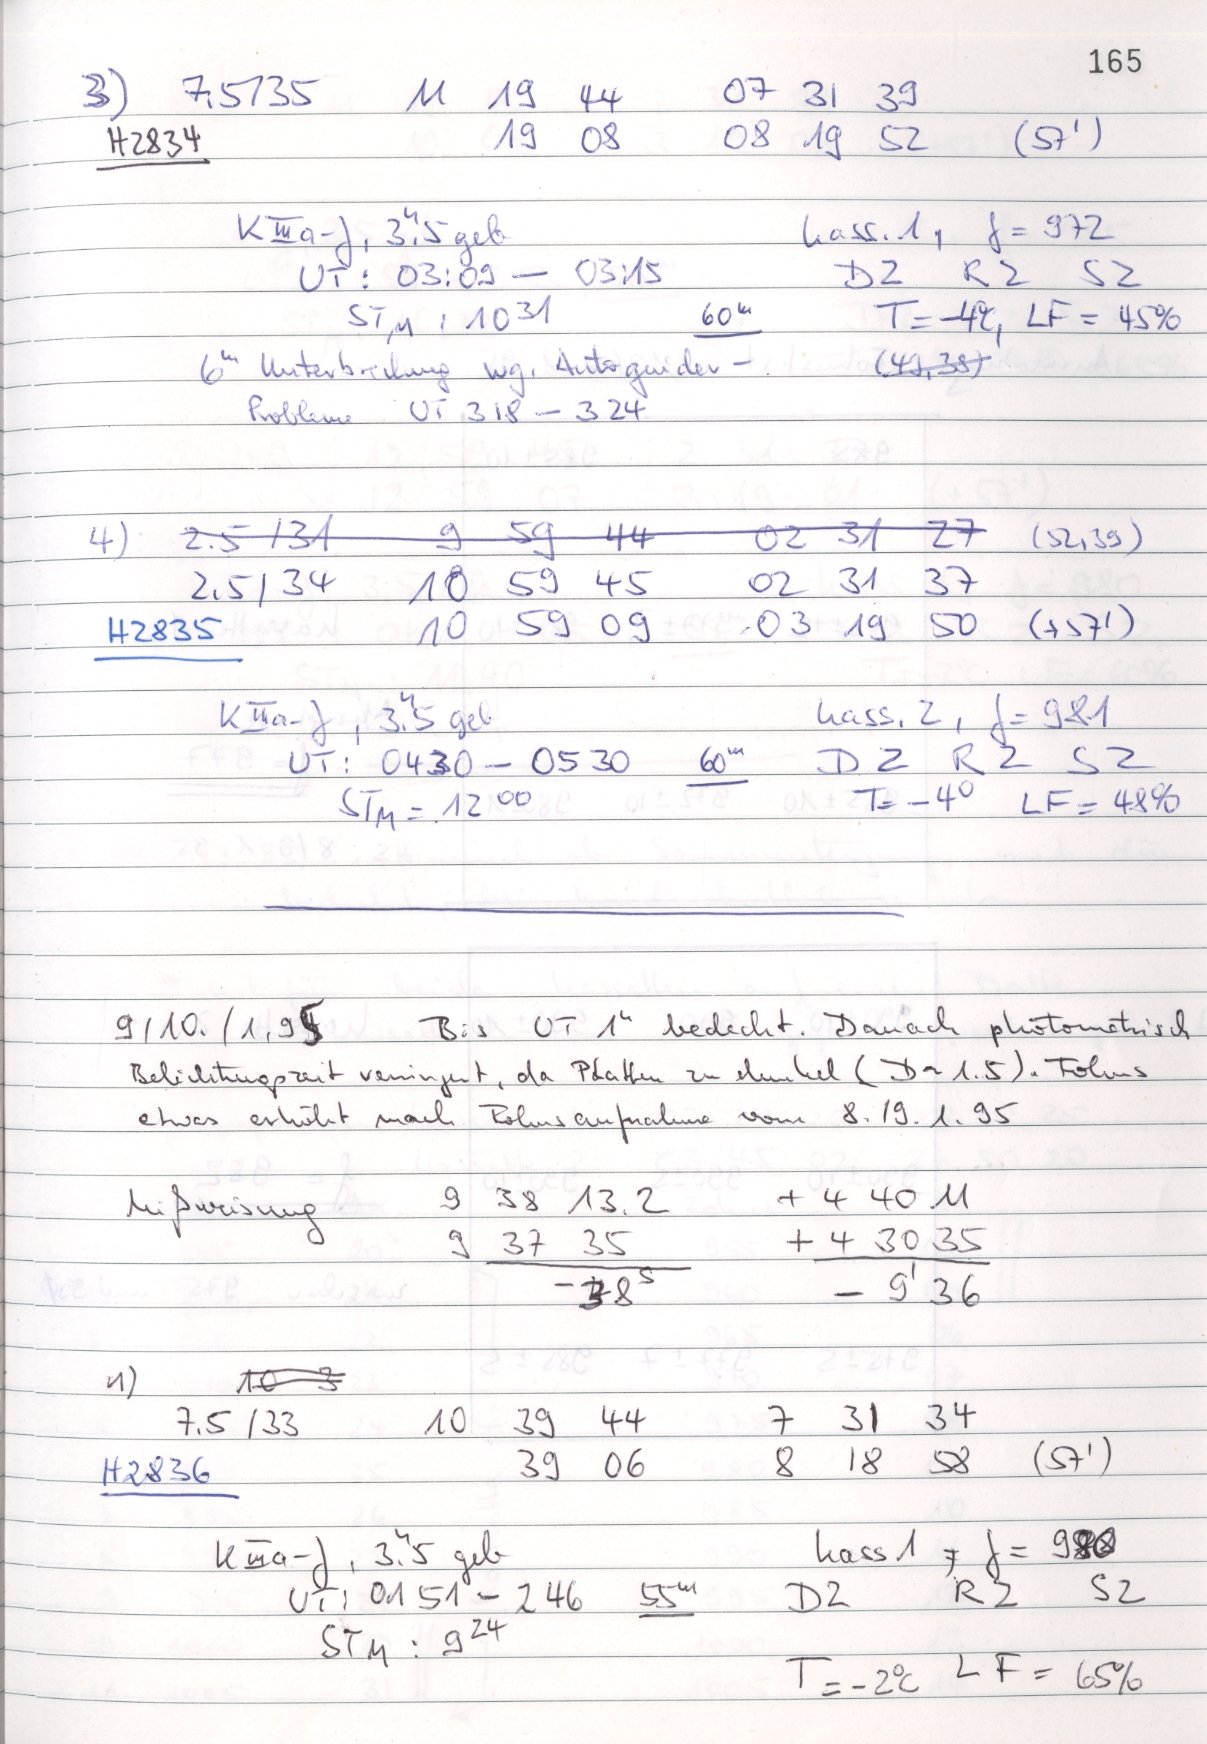 165
3) 7.5/35 11 19 44 07 31 39
H2834 19 08 08 19 52 (57')
KIIIa-J, 3.ʰ5 geb Kass. 1, f = 972
UT: 03:09 – 03:15 DZ RZ SZ
STM : 10 31 60ᵐ T = -4°C, LF = 45%
6ᵐ Unterbrechung wg. Autoguider- (49,38)
Probleme UT 318 – 324
4) 2.5/31 9 59 44 02 31 27 (52,39)
2.5/34 10 59 45 02 31 37
H2835 10 59 09 03 19 50 (+57')
KIIIa-J, 3.ʰ5 geb Kass. 2, f = 981
UT: 0430 – 0530 60ᵐ DZ RZ SZ
STM = 12 00 T = -4° LF = 48%
9/10./1.95 Bis UT 1ʰ bedeckt. Danach photometrisch
Belichtungszeit verringert, da Platten zu dunkel (D~1.5). Fokus
etwas erhöht nach Fokusaufnahme vom 8./9. 1. 95
Mißweisung 9 38 13.2 + 4 40 11
9 37 35 + 4 30 35
-38ˢ - 9' 36
1) 10 3
7.5/33 10 39 44 7 31 34
H2836 39 06 8 18 58 (57')
KIIIa-J, 3.ʰ5 geb Kass 1, f = 980
UT: 0151 – 246 55ᵐ DZ RZ SZ
STM : 9 24
T = -2°C LF = 65%